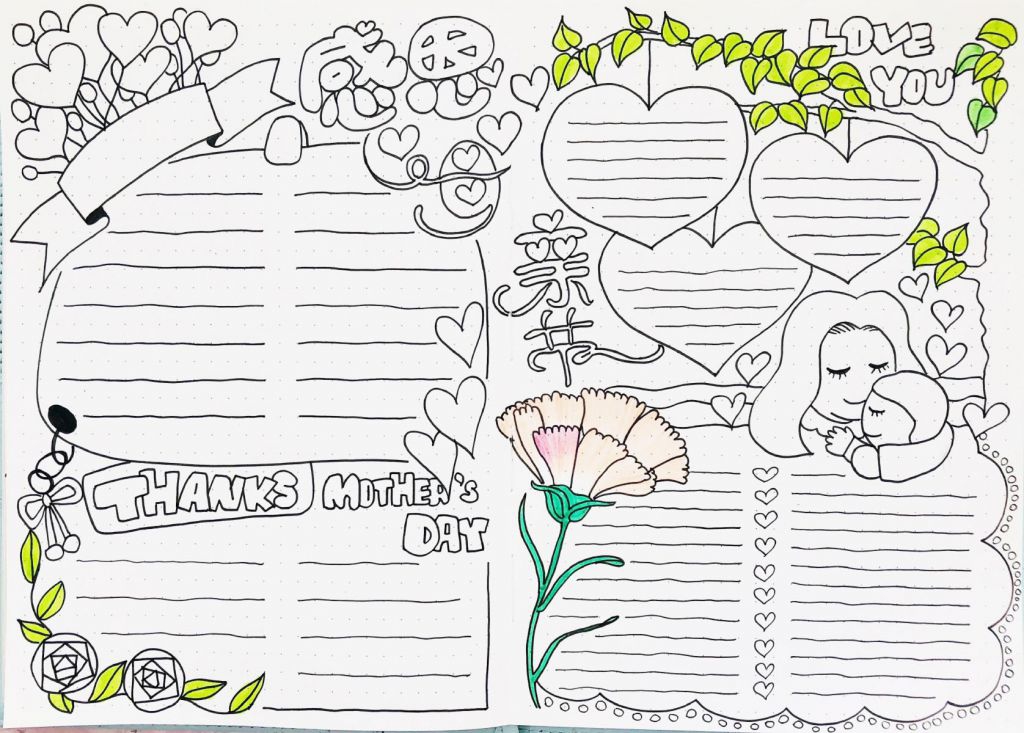 感恩
母
THANKS
MOTHER'S
DAY
LOVE
YOU
亲
节